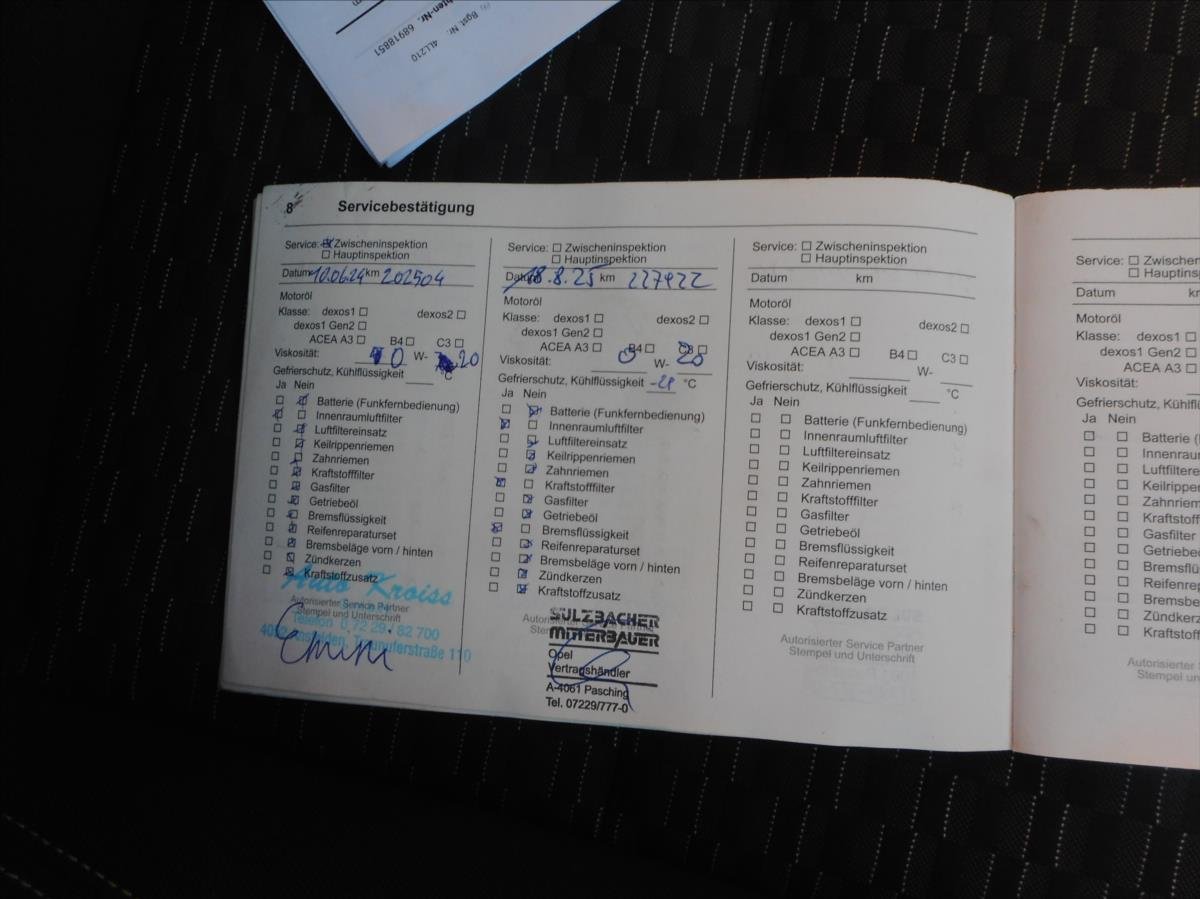 (6) Bgst Nr. 4LL210
hten-Nr. 68918851
8 Servicebestätigung
Service: ☒ Zwischeninspektion
☐ Hauptinspektion
Datum 10.06.24 km 202504
Motoröl
Klasse: dexos1 ☐ dexos2 ☐
dexos1 Gen2 ☐
ACEA A3 ☐ B4 ☐ C3 ☐
Viskosität: 0 W- 20
Gefrierschutz, Kühlflüssigkeit °C
Ja Nein
☐ ☒ Batterie (Funkfernbedienung)
☒ ☐ Innenraumluftfilter
☐ ☒ Luftfiltereinsatz
☐ ☒ Keilrippenriemen
☐ ☒ Zahnriemen
☐ ☒ Kraftstofffilter
☐ ☒ Gasfilter
☐ ☒ Getriebeöl
☐ ☒ Bremsflüssigkeit
☐ ☒ Reifenreparaturset
☐ ☒ Bremsbeläge vorn / hinten
☐ ☒ Zündkerzen
☐ ☒ Kraftstoffzusatz
Auto Kroiss
Autorisierter Service Partner
Stempel und Unterschrift
Telefon 0 72 29 / 82 700
Service: ☐ Zwischeninspektion
☐ Hauptinspektion
Datum 18.8.25 km 227922
Motoröl
Klasse: dexos1 ☐ dexos2 ☐
dexos1 Gen2 ☐
ACEA A3 ☐ B4 ☐ C3 ☐
Viskosität: 0 W- 20
Gefrierschutz, Kühlflüssigkeit °C
Ja Nein
☐ ☒ Batterie (Funkfernbedienung)
☒ ☐ Innenraumluftfilter
☐ ☒ Luftfiltereinsatz
☐ ☒ Keilrippenriemen
☐ ☒ Zahnriemen
☒ ☐ Kraftstofffilter
☐ ☒ Gasfilter
☐ ☒ Getriebeöl
☒ ☐ Bremsflüssigkeit
☐ ☒ Reifenreparaturset
☐ ☒ Bremsbeläge vorn / hinten
☐ ☒ Zündkerzen
☐ ☒ Kraftstoffzusatz
SULZBACHER
MITTERBAUER
Opel
Vertragshändler
A-4061 Pasching
Tel. 07229/777-0
Service: ☐ Zwischeninspektion
☐ Hauptinspektion
Datum km
Motoröl
Klasse: dexos1 ☐ dexos2 ☐
dexos1 Gen2 ☐
ACEA A3 ☐ B4 ☐ C3 ☐
Viskosität: W-
Gefrierschutz, Kühlflüssigkeit °C
Ja Nein
☐ ☐ Batterie (Funkfernbedienung)
☐ ☐ Innenraumluftfilter
☐ ☐ Luftfiltereinsatz
☐ ☐ Keilrippenriemen
☐ ☐ Zahnriemen
☐ ☐ Kraftstofffilter
☐ ☐ Gasfilter
☐ ☐ Getriebeöl
☐ ☐ Bremsflüssigkeit
☐ ☐ Reifenreparaturset
☐ ☐ Bremsbeläge vorn / hinten
☐ ☐ Zündkerzen
☐ ☐ Kraftstoffzusatz
Autorisierter Service Partner
Stempel und Unterschrift
Service: ☐ Zwischenins
☐ Hauptinspe
Datum km
Motoröl
Klasse: dexos1 ☐
dexos1 Gen2 ☐
ACEA A3 ☐
Viskosität:
Gefrierschutz, Kühlflüss
Ja Nein
☐ ☐ Batterie (F
☐ ☐ Innenraum
☐ ☐ Luftfiltere
☐ ☐ Keilrippen
☐ ☐ Zahnrieme
☐ ☐ Kraftstoff
☐ ☐ Gasfilter
☐ ☐ Getriebeö
☐ ☐ Bremsflüs
☐ ☐ Reifenrep
☐ ☐ Bremsbelä
☐ ☐ Zündkerz
☐ ☐ Kraftstoff
Autorisierter Se
Stempel un